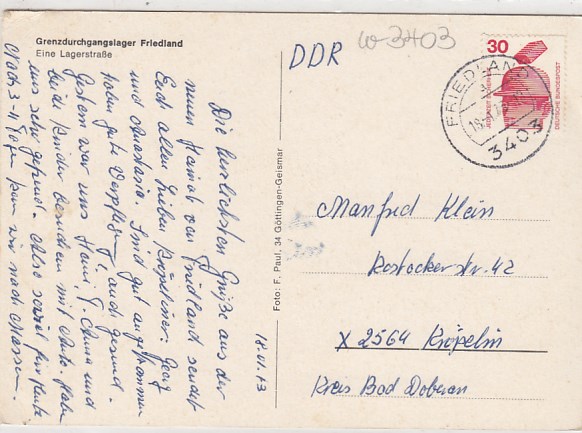 Grenzdurchgangslager Friedland
Eine Lagerstraße
DDR
w-3403
30
DEUTSCHE BUNDESPOST
FRIEDLAND
3403
Die herzlichsten Grüße aus der
neuen Heimat von Friedland sendet
Euch allen lieben Kröpeliner. Georg
und Anastasia. Sind gut angekommen
haben gute Verpflegung auch gesund.
Gestern war uns Hani, T. Anna und
beide Kinder besuchen mit Auto. Haben
uns sehr gefreut. Also soviel für heute
Nach 3-4 Tagen kommen wir nach Massen.
18.VI.73
Foto: F. Paul, 34 Göttingen-Geismar
Manfred Klein
Rostocker str. 42
X 2564 Kröpelin
Kreis Bad Doberan